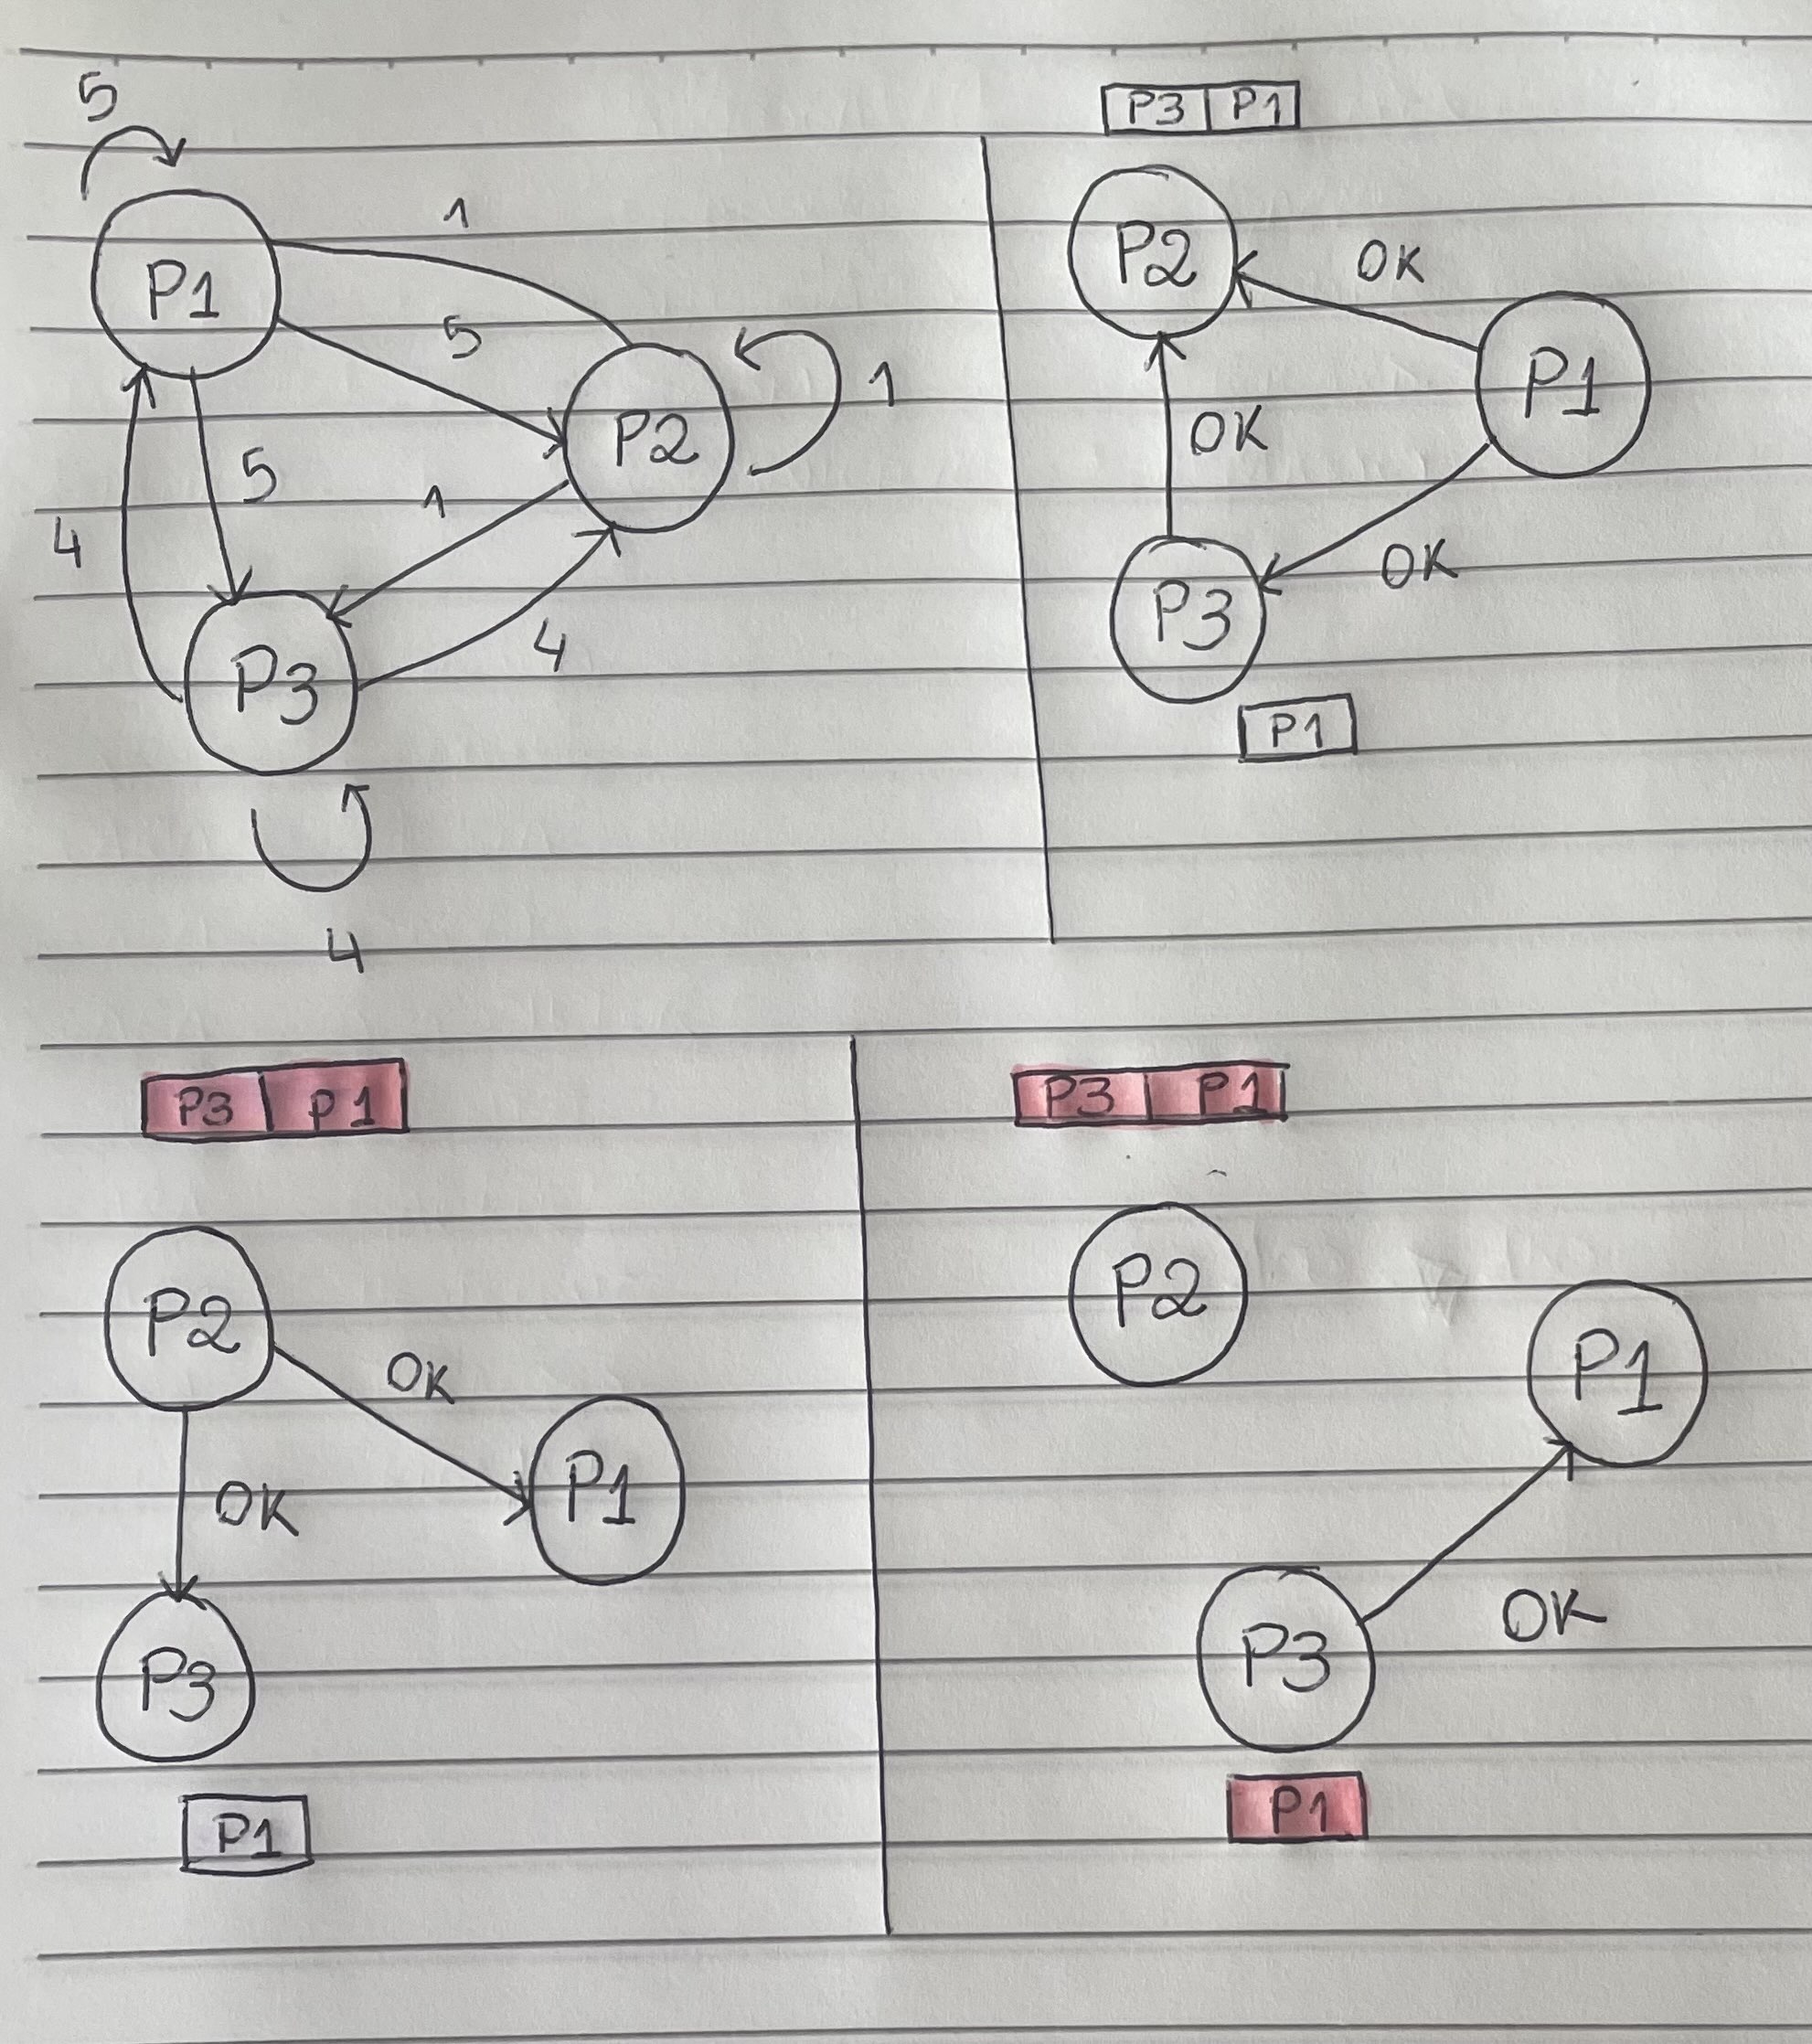 5
1
P1
5
P2
1
5
1
4
P3
4
4
P3 P1
P2
OK
P1
OK
P3
OK
P1
P3 P1
P2
OK
P1
OK
P3
P1
P3 P1
P2
P1
P3
OK
P1